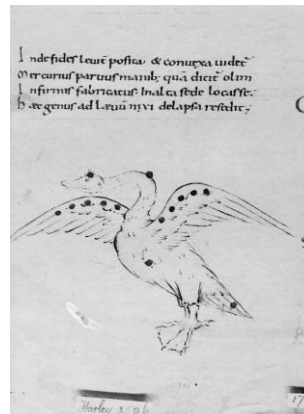 Inde fides leuit̄ posita & conuexa uidet̄
Mercurius paruus manib; quā dicit̄ olim
Infirmis fabricatus. Inalta sede locasse:
hæc genus ad læuū nixi delapsa resedit;
Harley 2506